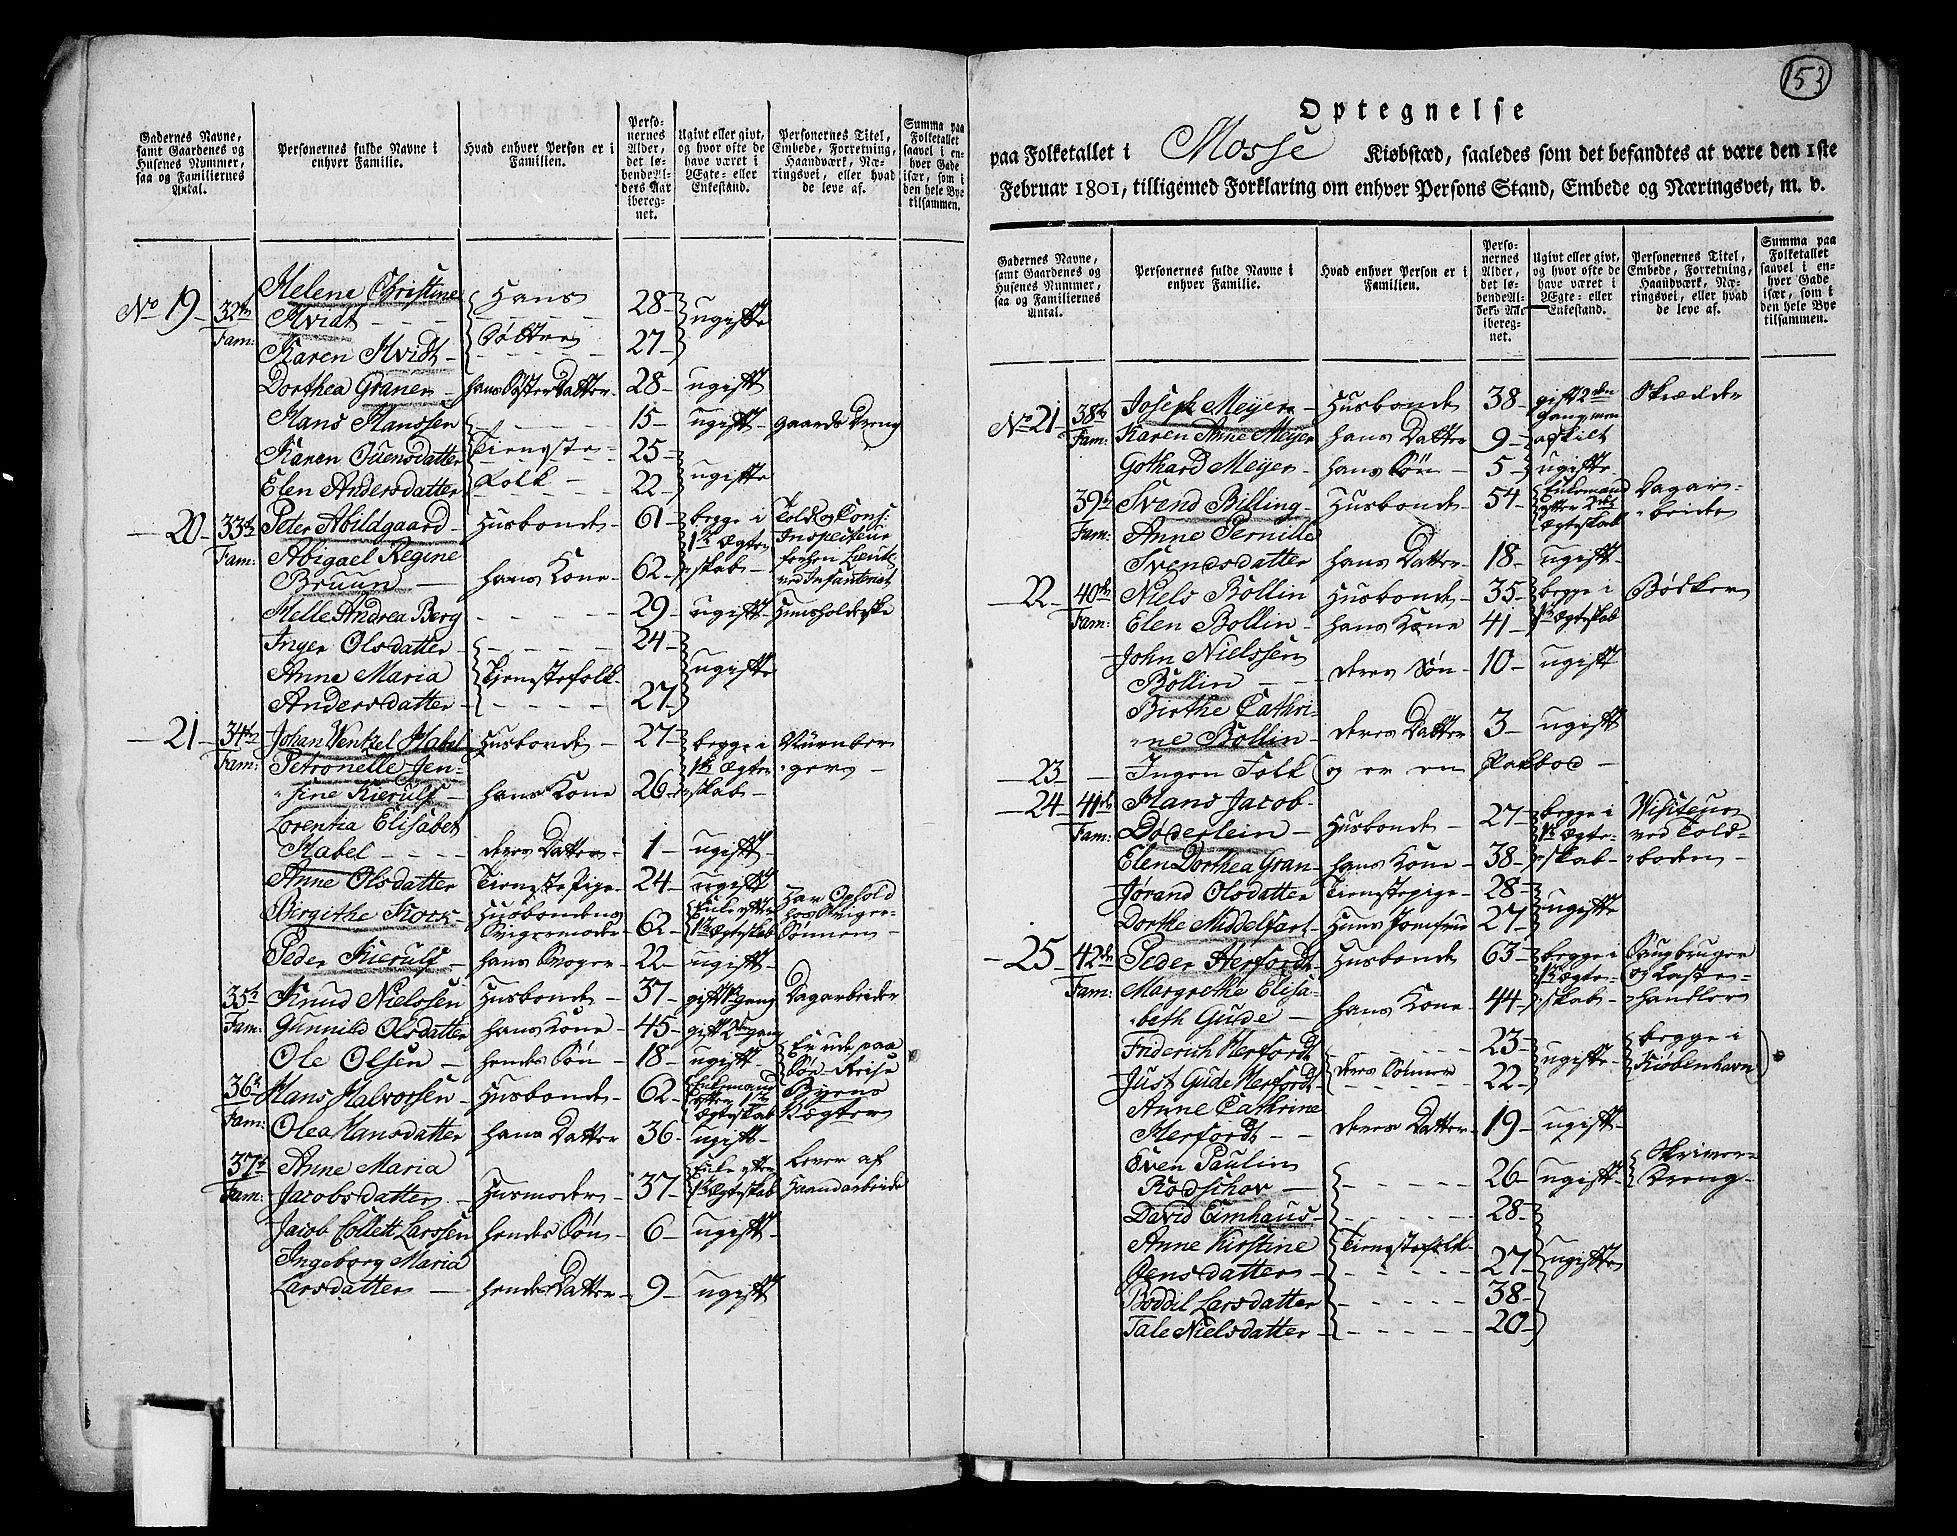 153
Gadernes Navne, samt Gaardenes og Husenes Nummer, saa og Familiernes Antal.
Personernes fulde Navne i enhver Familie.
Hvad enhver Person er i Familien.
Personernes Alder, det løbende Alders Aar iberegnet.
Ugivt eller givt, og hvor ofte de have været i Ægte- eller Enkestand.
Personernes Titel, Embede, Forretning, Haandværk, Næringsvei, eller hvad de leve af.
Summa paa Folketallet saavel i enhver Gade især, som i den hele Bye tilsammen.
No 19 32te Fam: Helene Christine Hvidt Hans 28 ugifte
Karen Hvidt Døttre 27
Dorthea Graner hans Søster Datter 28 ugift
Hans Hanssen 15 ugift gaards Dreng
Karen Svensdatter Tieneste- 25 ugifte
Elen Andersdatter Folk 22
20 33te Fam: Peter Abildgaard Husbonde 61 begge i 1te Ægteskab Told og Cons: Inspecteur forhen Lieut: ved Infanteriet
Abigael Regine Bruun hans Kone 62
Helle Andrea Berg 29 ugift Huusholderske
Inger Olsdatter 24 ugifte
Anne Maria Andersdatter Tienestefolk 27
21 34te Fam: Johan Wentzel Habel Husbonde 27 begge i 1te Ægteskab Nürnberger
Petronelle Jensine Kierulf hans Kone 26
Lorentia Elisabet Habel deres Datter 1 ugift
Anne Olsdatter Tieneste Pige 24 ugift
Birgithe Kock Husbondens Svigermoder 62 Enke efter 1te Ægteskab Har Ophold hos Svigersønnen
Peder Kierulf hans Svoger 22 ugift
35te Fam: Knud Nielssen Husbonde 37 gift 1te gang Dagarbeider
Gunnild Olsdatter hans Kone 45 gift 2den gang
Ole Olsen hendes Søn 18 ugift Er ude paa Søe-Reise
36te Fam: Hans Halvorsen Husbonde 62 Enkemand efter 1te Ægteskab Byens Vægter
Olea Hansdatter hans Datter 36 ugift
37te Fam: Anne Maria Jacobsdatter Husmoder 37 Enke efter 1te Ægteskab Lever af Haandarbeide
Jacob Collett Larssen hendes Søn 6 ugift
Ingeborg Maria Larsdatter hendes Datter 9 ugift
Optegnelse
paa Folketallet i Mosse Kiøbstæd, saaledes som det befandtes at være den 1ste
Februar 1801, tilligemed Forklaring om enhver Persons Stand, Embede og Næringsvei, m. v.
Gadernes Navne, samt Gaardenes og Husenes Nummer, saa og Familiernes Antal.
Personernes fulde Navne i enhver Familie.
Hvad enhver Person er i Familien.
Personernes Alder, det løbende Alders Aar iberegnet.
Ugivt eller givt, og hvor ofte de have været i Ægte- eller Enkestand.
Personernes Titel, Embede, Forretning, Haandværk, Næringsvei, eller hvad de leve af.
Summa paa Folketallet saavel i enhver Gade især, som i den hele Bye tilsammen.
No 21 38te Fam: Joseph Meyer Husbonde 38 gift 2den gang men afskilt Skrædder
Karen Anne Meyer hans Datter 9 ugifte
Gothard Meyer hans Søn 5
39te Fam: Svend Billing Husbonde 54 Enkemand efter 2det Ægteskab Dagarbeider
Anne Pernille Svendsdatter hans Datter 18 ugift
22 40de Fam: Niels Bollin Husbonde 35 begge i 1te Ægteskab Bødker
Elen Bollin hans Kone 41
John Nielssen Bollin deres Søn 10 ugift
Birthe Cathrine Bollin deres Datter 3 ugift
23 Ingen Folk og er en
24 41de Fam: Hans Jacob Døderlein Husbonde 27 begge i 1te Ægteskab Visiteur ved Toldboden
Elen Dorthea Gran hans Kone 38
Jørand Olsdatter Tienestepige 28 ugifte
Dorthe Middelfart Huus Jomfrue 27
25 42de Fam: Peder Herfordt Husbonde 63 begge i 1te Ægteskab Saugbruger og Lastehandler
Margrethe Elisabeth Gude hans Kone 44
Friderich Herfordt deres Sønner 23 ugifte begge i Kiøbenhavn
Just Gude Herfordt 22
Anne Cathrine Herfordt deres Datter 19 ugift
Even Paulin Rodschov 26 ugift Skriver-Dreng
David Eimhaus 28 ugifte
Anne Kirstine Jensdatter Tienestefolk 27
Boddil Larsdatter 38
Tale Nielsdatter 20